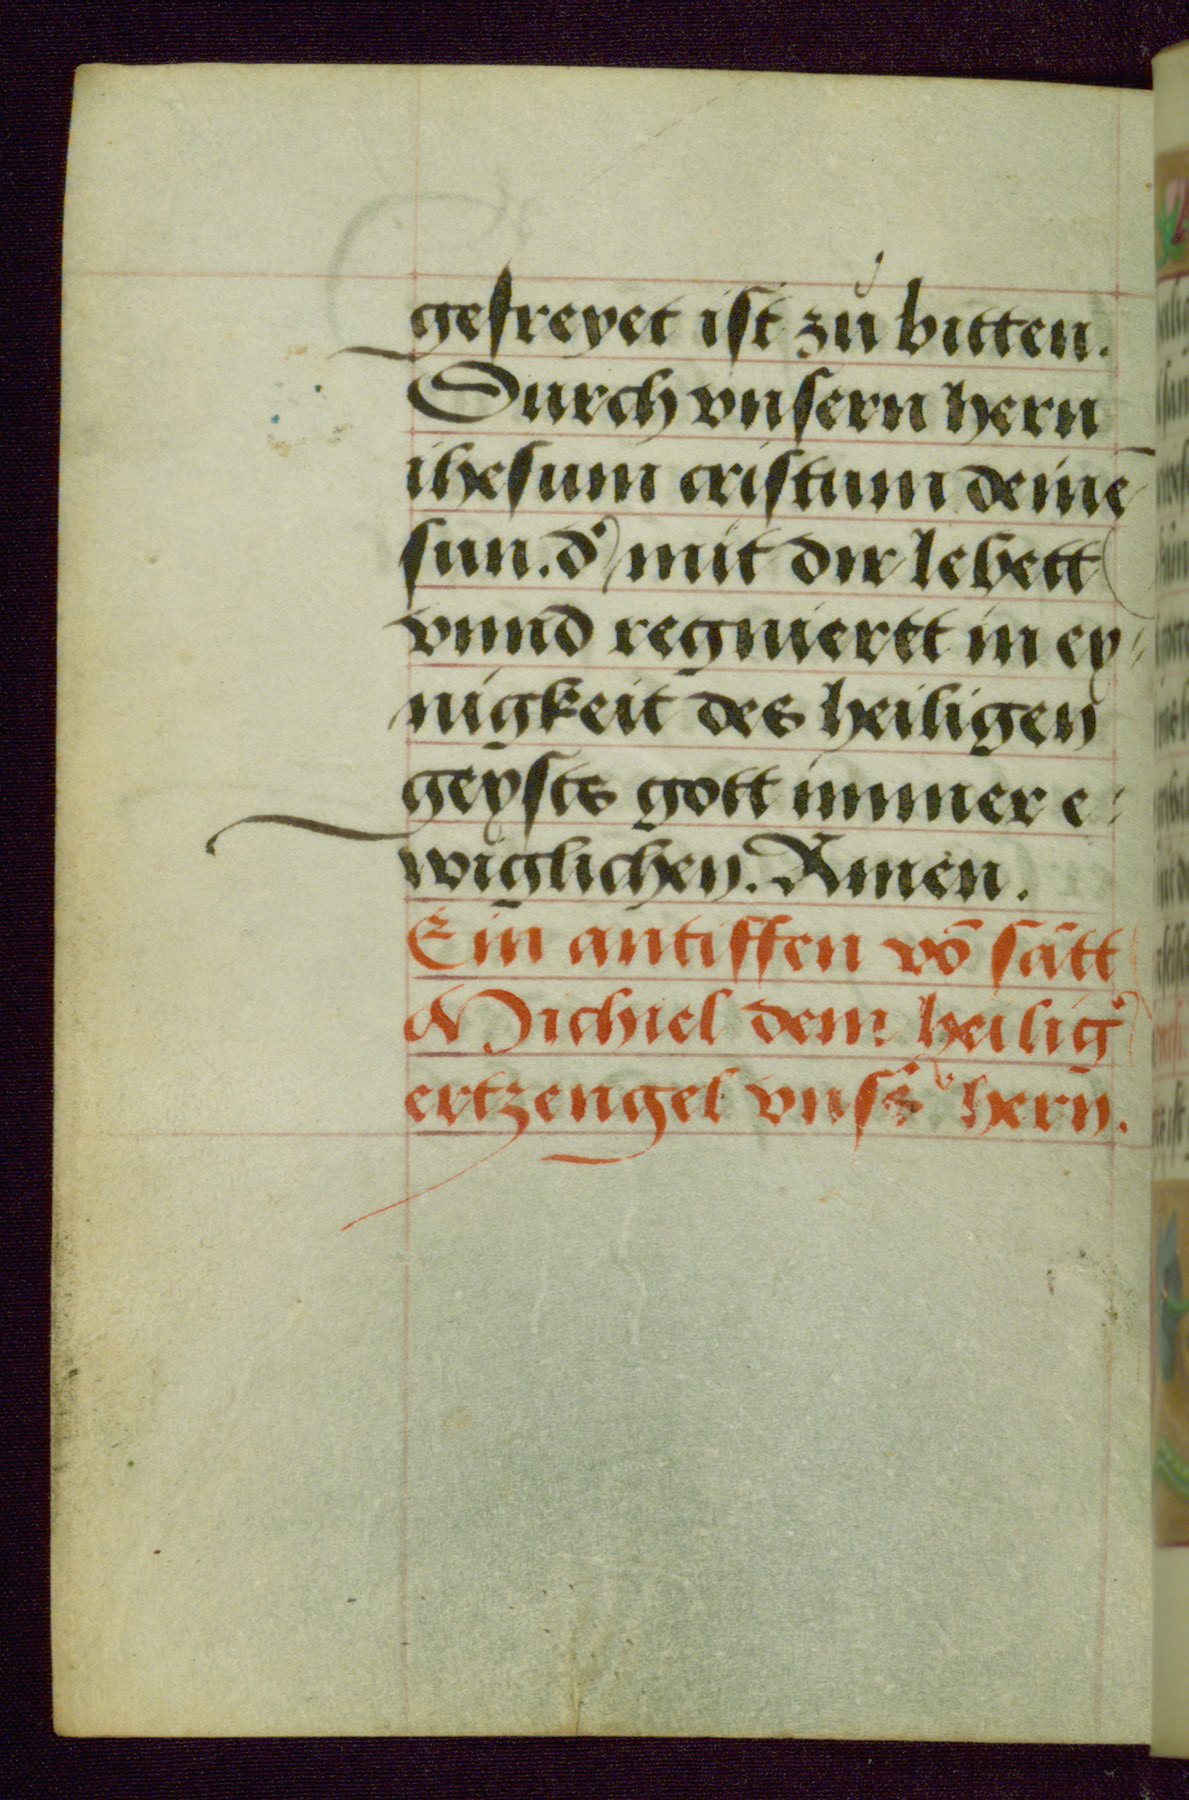 gefreyet ist zů bitten.
Durch vnsern hern
ihesum cristum deinē
sun. d' mit dir lebett
vnnd regniertt in ey⸗
nigkeit des heiligen
geysts gott immer e⸗
wiglichen. Amen.
Ein antiffen vō sātt
Michiel dem heilig'
ertzengel vnsš hern.